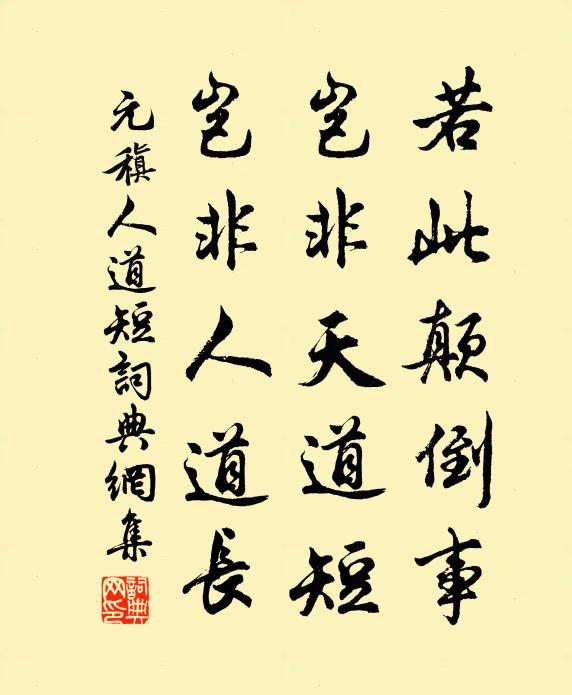 若此颠倒事
岂非天道短
岂非人道長
元稹人道短詞典網集
詞典網印